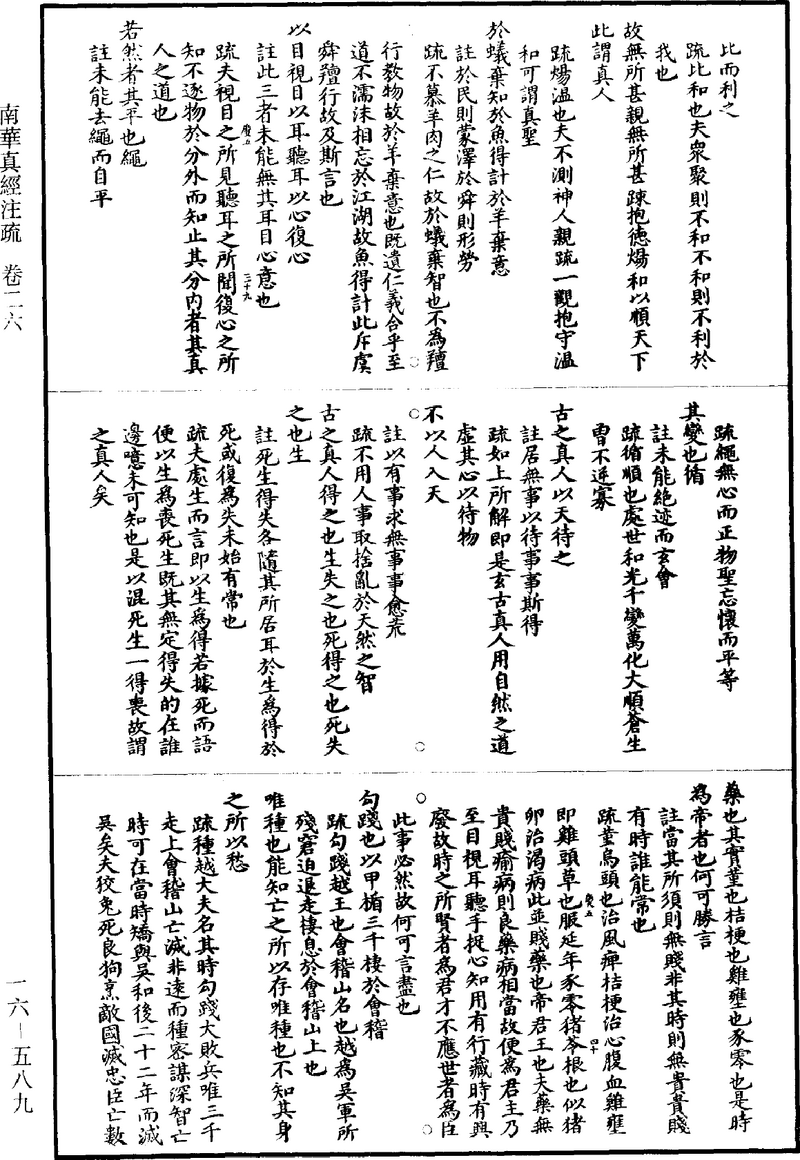 南華真經注疏　卷二六
此而利之
疏比和也夫衆聚則不和不和則不利於
我也
故無所甚親無所甚踈抱德煬和以順天下
此謂真人
疏煬温也夫不測神人親疏一觀抱守温
和可謂真聖
於蟻棄知於魚得計於羊棄意
註於民則蒙澤於舜則形勞
疏不慕羊肉之仁故於蟻棄智也不為羶
行教物故於羊棄意也既遺仁義合乎至
道不濡沫相忘於江湖故魚得計此斥虞
舜羶行故及斯言也
以目視目以耳聽耳以心復心
註此三者未能無其耳目心意也
疏夫視目之所見聽耳之所聞復心之所
知不逐物於分外而知止其分内者其真
人之道也
若然者其平也繩
註未能去繩而自平
疏繩無心而正物聖忘懷而平等
其變也循
註未能絶迹而玄會
疏循順也處世和光千變萬化大順蒼生
曾不逆寡
古之真人以天待之
註居無事以待事事斯得
疏如上所解即是玄古真人用自然之道
虚其心以待物
不以人入天
註以有事求無事事愈荒
疏不用人事取捨亂於天然之智
古之真人得之也生失之也死得之也死失
之也生
註死生得失各隨其所居耳於生為得於
死或復為失未始有常也
疏夫處生而言即以生為得若據死而語
便以生為喪死生既其無定得失的在誰
邊噫未可知也是以混死生一得喪故謂
之真人矣
藥也其實堇也桔梗也雞壅也豕零也是時
為帝者也何可勝言
註當其所須則無賤非其時則無貴貴賤
有時誰能常也
疏堇烏頭也治風痺桔梗治心腹血雞壅
即雞頭草也服延年豕零猪苓根也似猪
卵治渴病此並賤藥也帝君王也夫藥無
貴賤瘉病則良藥病相當故便為君主乃
至目視耳聽手捉心知用有行藏時有與
廢故時之所賢者為君才不應世者為臣
此事必然故何可言盡也
勾踐也以甲楯三千棲於會稽
疏勾踐越王也會稽山名也越為吳軍所
殘窘迫退走棲息於會稽山上也
唯種也能知亡之所以存唯種也不知其身
之所以愁
疏種越大夫名其時勾踐大敗兵唯三千
走上會稽山亡滅非遠而種密謀深智亡
時可在當時矯與吳和後二十二年而滅
吳矣夫狡兔死良狗烹敵國滅忠臣亡數
一六－五八九